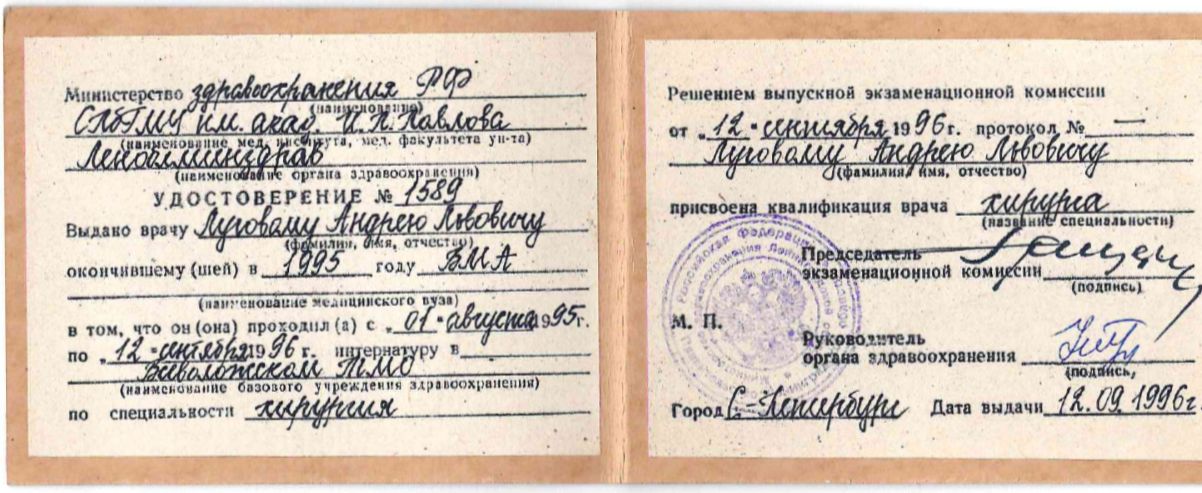 Министерство здравоохранения РФ
(наименование)
СПбГМУ им. акад. И. П. Павлова
(наименование мед. института, мед. факультета ун-та)
Леноблминздрав
(наименование органа здравоохранения)
УДОСТОВЕРЕНИЕ № 1589
Выдано врачу Луговому Андрею Львовичу
(фамилия, имя, отчество)
окончившему (шей) в 1995 году ВМА
(наименование медицинского вуза)
в том, что он (она) проходил (а) с „01" августа 1995г.
по „12" сентября 1996 г. интернатуру в
Всеволожском ТМО
(наименование базового учреждения здравоохранения)
по специальности хирургия
Решением выпускной экзаменационной комиссии
от „12" сентября 1996г. протокол № —
Луговому Андрею Львовичу
(фамилия, имя, отчество)
присвоена квалификация врача хирурга
(название специальности)
Председатель
экзаменационной комиссии
(подпись)
М. П.
Руководитель
органа здравоохранения
(подпись)
Город С.-Петербург Дата выдачи 12.09.1996г.
Российская Федерация